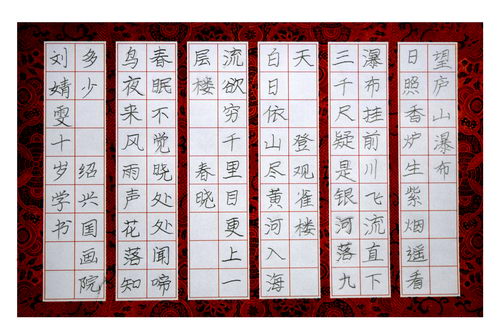 望庐山瀑布
日照香炉生紫烟遥看
瀑布挂前川飞流直下
三千尺疑是银河落九
天 登观雀楼
白日依山尽黄河入海
流欲穷千里目更上一
层楼 春晓
春眠不觉晓处处闻啼
鸟夜来风雨声花落知
多少 绍兴国画院
刘婧雯十岁学书